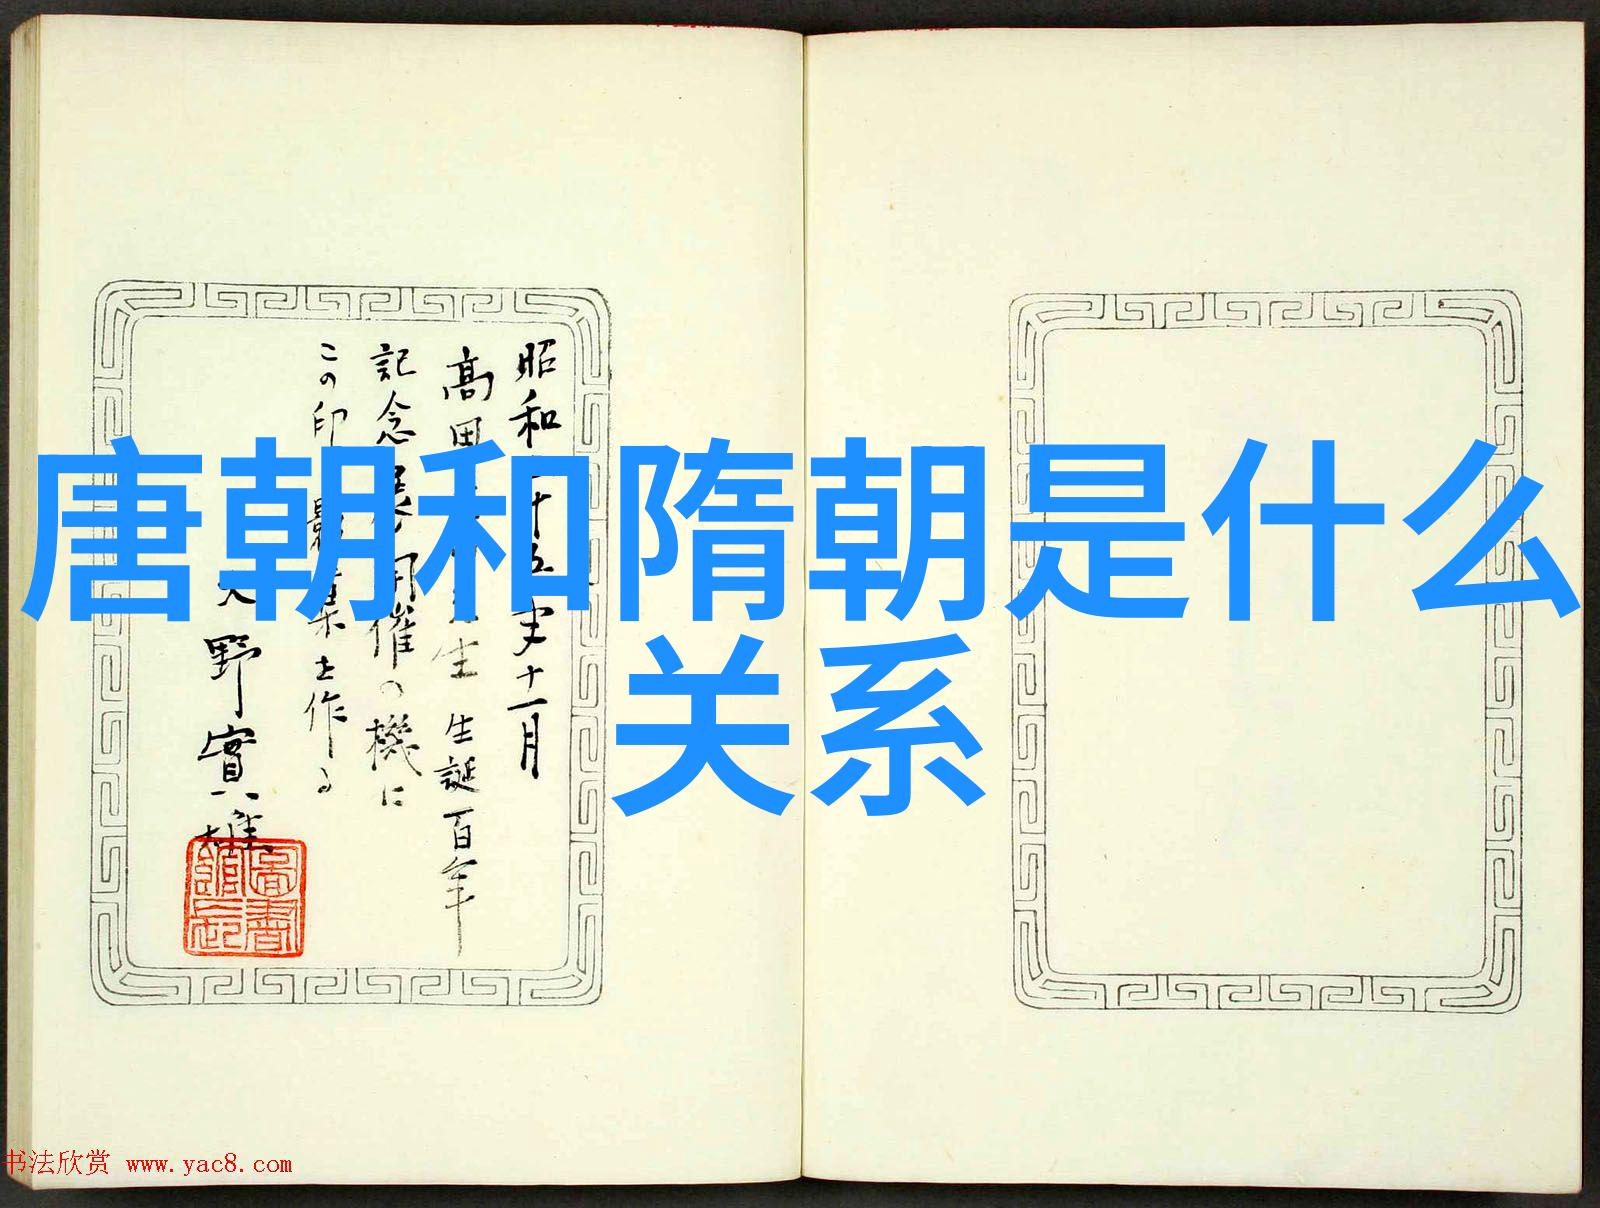 唐朝和隋朝是什么
关系
昭和 十五年十一月
高田 生 生誕百年
記念 開催の機に
この印 集を作る
大野實雄
圖書
館長
书法欣赏 www.yac8.com